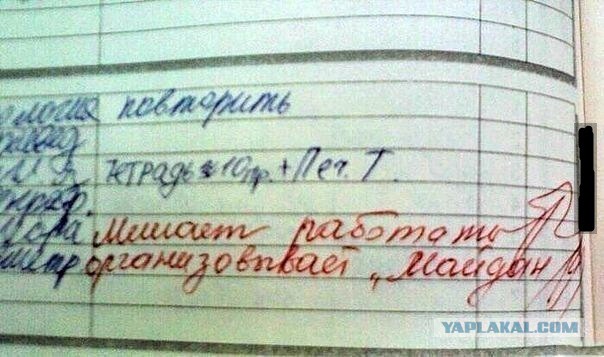 повторить
тетрадь 10 пр. + Печ. Т.
Мешает работать
организовывает „Майдан"
YAPLAKAL.COM